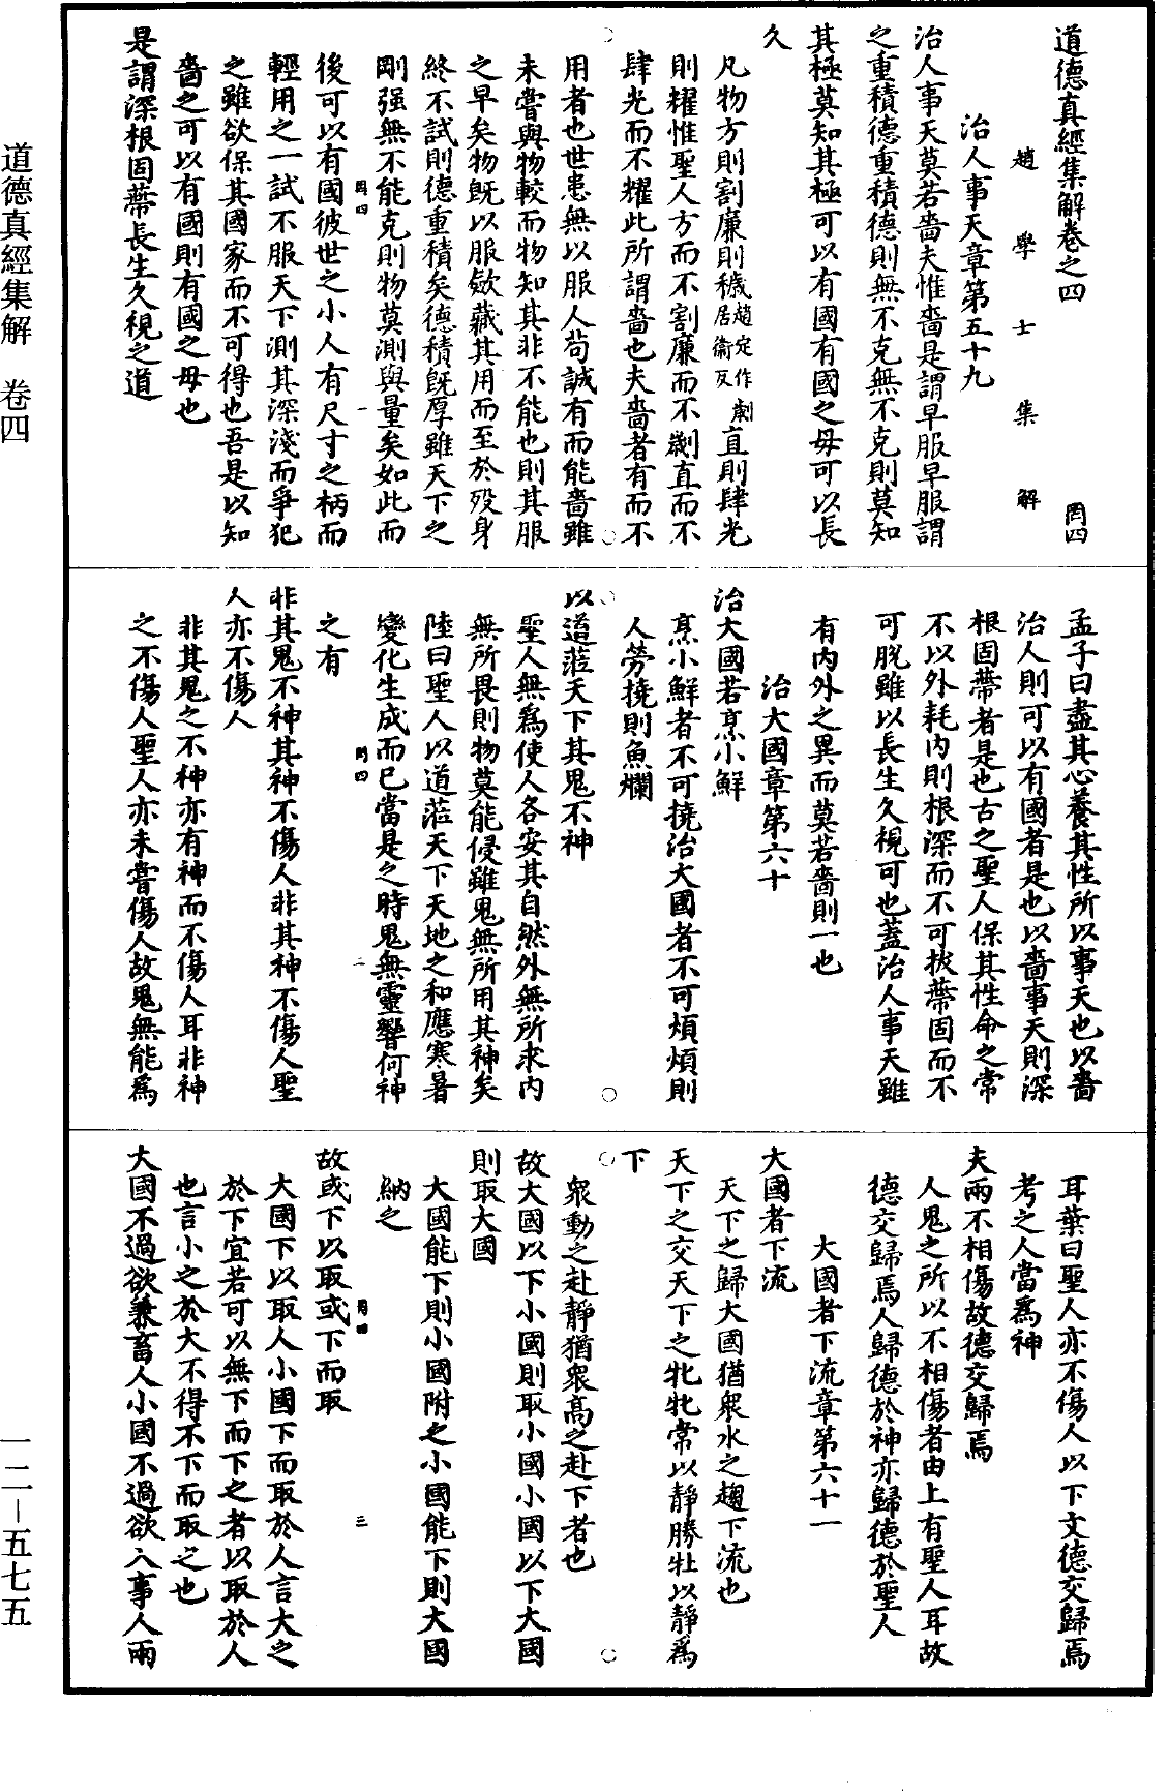 道德真經集解卷之四 罔四
趙學士集解
治人事天章第五十九
治人事天莫若嗇夫惟嗇是謂早服早服謂
之重積德重積德則無不克無不克則莫知
其極莫知其極可以有國有國之母可以長
久
凡物方則割廉則穢趙定作劌居衛反直則肆光
則耀惟聖人方而不割廉而不劌直而不
肆光而不耀此所謂嗇也夫嗇者有而不
用者也世患無以服人茍誠有而能嗇雖
未嘗與物較而物知其非不能也則其服
之早矣物既以服歛藏其用而至於歿身
終不試則德重積矣德積既厚雖天下之
剛强無不能克則物莫測與量矣如此而
罔四 一
後可以有國彼世之小人有尺寸之柄而
輕用之一試不服天下測其深淺而爭犯
之雖欲保其國家而不可得也吾是以知
嗇之可以有國則有國之母也
是謂深根固蔕長生久視之道
孟子曰盡其心養其性所以事天也以嗇
治人則可以有國者是也以嗇事天則深
根固蔕者是也古之聖人保其性命之常
不以外耗内則根深而不可拔蔕固而不
可脫雖以長生久視可也蓋治人事天雖
有内外之異而莫若嗇則一也
治大國章第六十
治大國若烹小鮮
烹小鮮者不可撓治大國者不可煩煩則
人勞撓則魚爛
以道莅天下其鬼不神
聖人無為使人各安其自然外無所求内
無所畏則物莫能侵雖鬼無所用其神矣
陸曰聖人以道莅天下天地之和應寒暑
變化生成而已當是之時鬼無靈響何神
罔四 二
之有
非其鬼不神其神不傷人非其神不傷人聖
人亦不傷人
非其鬼之不神亦有神而不傷人耳非神
之不傷人聖人亦未嘗傷人故鬼無能為
耳葉曰聖人亦不傷人以下文德交歸焉
考之人當為神
夫兩不相傷故德交歸焉
人鬼之所以不相傷者由上有聖人耳故
德交歸焉人歸德於神亦歸德於聖人
大國者下流章第六十一
大國者下流
天下之歸大國猶衆水之趨下流也
天下之交天下之牝牝常以靜勝牡以靜為
下
衆動之赴靜猶衆高之赴下者也
故大國以下小國則取小國小國以下大國
則取大國
大國能下則小國附之小國能下則大國
納之
罔四 三
故或下以取或下而取
大國下以取人小國下而取於人言大之
於下宜若可以無下而下之者以取於人
也言小之於大不得不下而取之也
大國不過欲兼畜人小國不過欲入事人兩
道德真經集解 卷四
一二－五七五